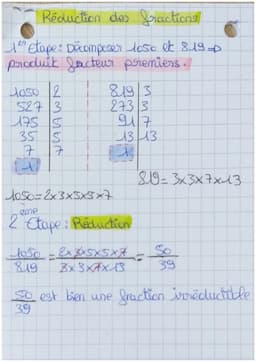 Réduction des fractions
1ère étape: Décomposer 1050 et 819 ⇒
produit facteur premiers.
1050 | 2    819 | 3
527 | 3    273 | 3
175 | 5    91 | 7
35 | 5    13 | 13
7 | 7    1
1
819 = 3x3x7x13
1050 = 2x3x5x5x7
2ème étape: Réduction
1050/819 = 2x3x5x5x7/3x3x7x13 = 50/39
50/39 est bien une fraction irréductible